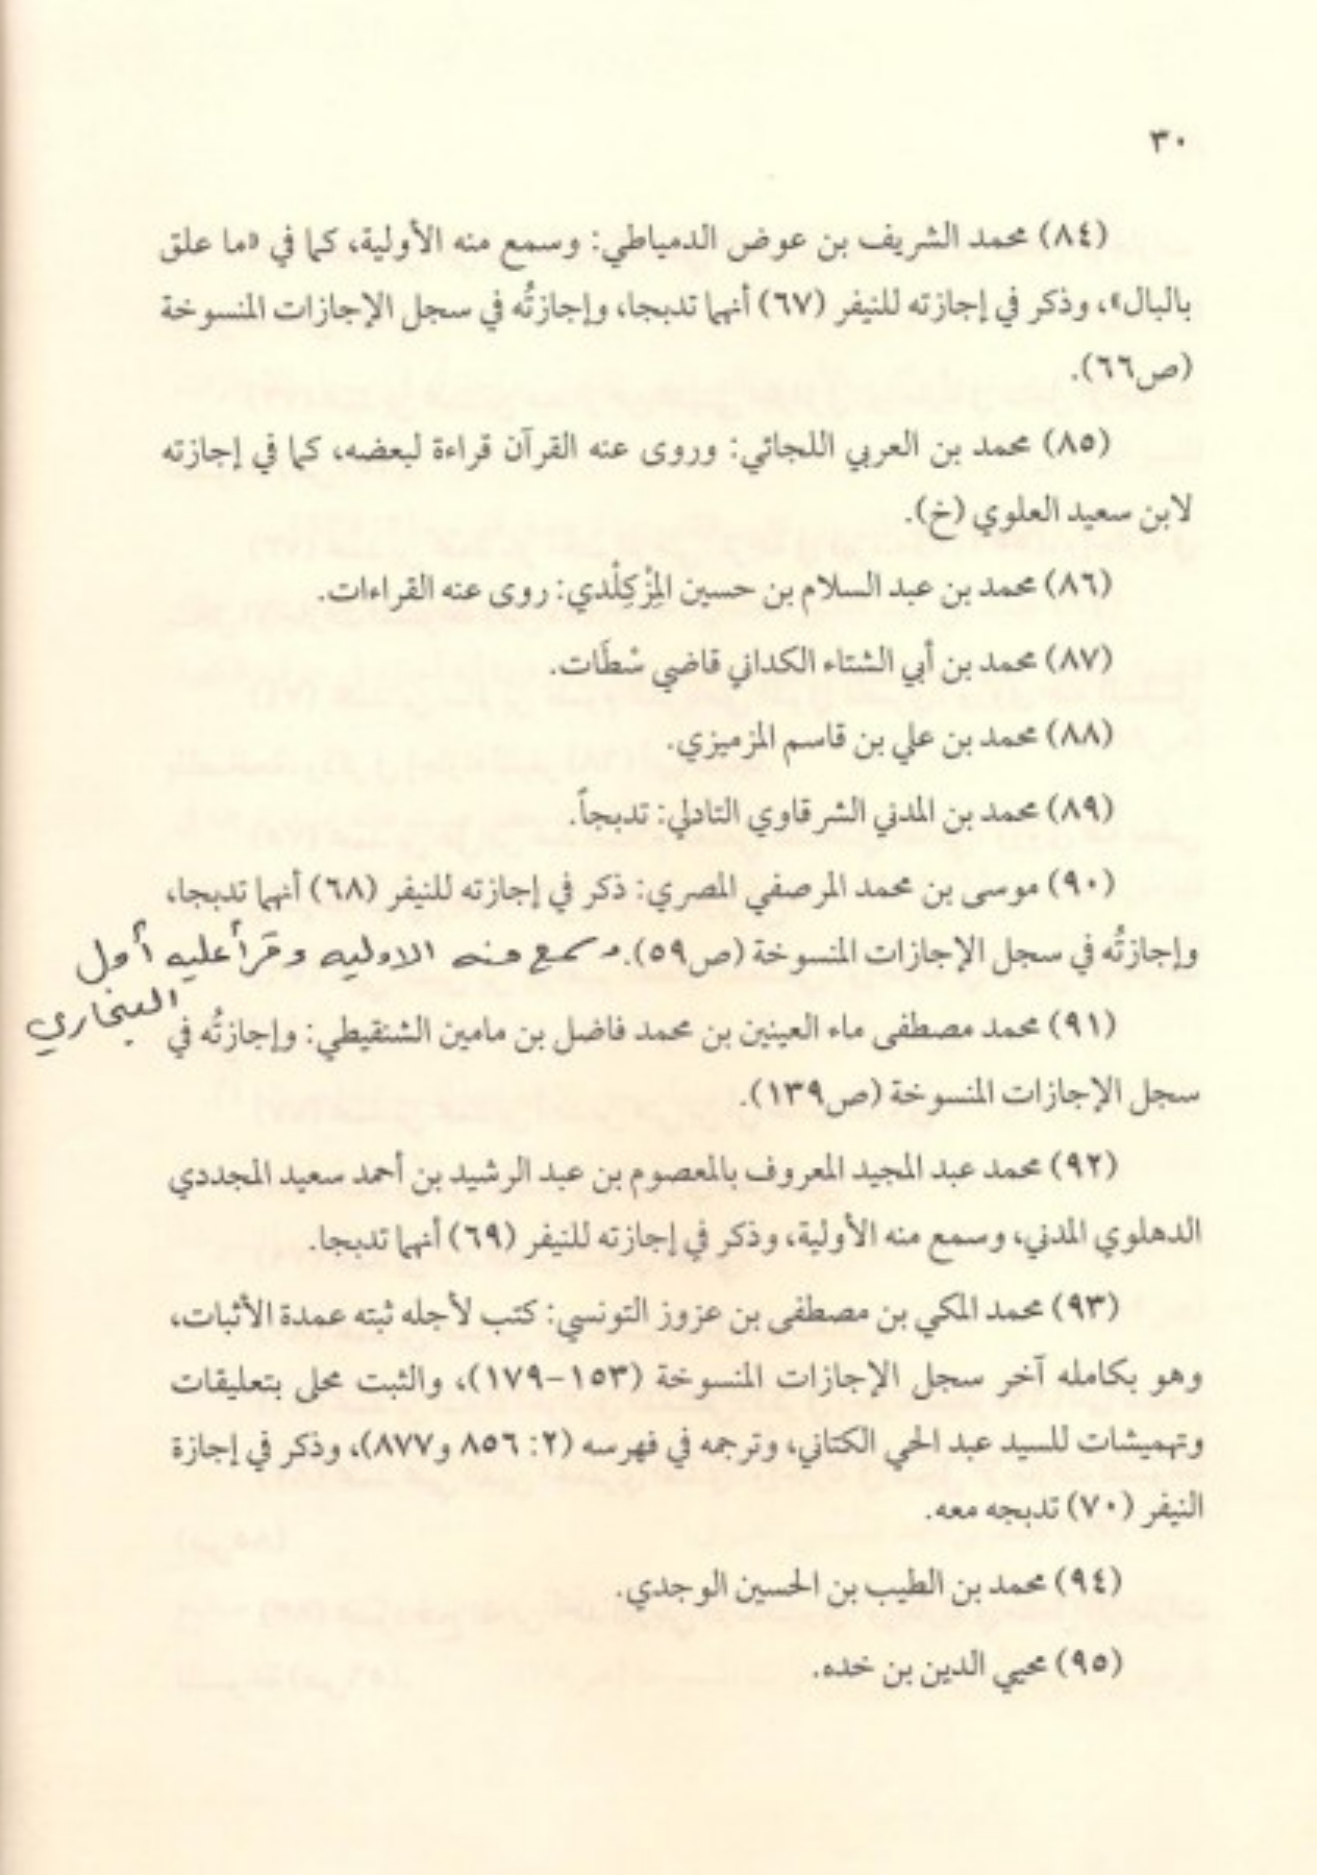 ٣٠
(٨٤) محمد الشريف بن عوض الدمياطي: وسمع منه الأولية، كما في «ما علق
بالبال»، وذكر في إجازته للنيفر (٦٧) أنهما تدبجا، وإجازتُه في سجل الإجازات المنسوخة
(ص٦٦).
(٨٥) محمد بن العربي اللجائي: وروى عنه القرآن قراءة لبعضه، كما في إجازته
لابن سعيد العلوي (خ).
(٨٦) محمد بن عبد السلام بن حسين المِزْكِلْدي: روى عنه القراءات.
(٨٧) محمد بن أبي الشتاء الكداني قاضي سْطَات.
(٨٨) محمد بن علي بن قاسم المزميزي.
(٨٩) محمد بن المدني الشرقاوي التادلي: تدبجاً.
(٩٠) موسى بن محمد المرصفي المصري: ذكر في إجازته للنيفر (٦٨) أنهما تدبجا،
وإجازتُه في سجل الإجازات المنسوخة (ص٥٩). وسمع منه الاوليه وقرأ عليه أول
البخاري
(٩١) محمد مصطفى ماء العينين بن محمد فاضل بن مامين الشنقيطي: وإجازتُه في
سجل الإجازات المنسوخة (ص١٣٩).
(٩٢) محمد عبد المجيد المعروف بالمعصوم بن عبد الرشيد بن أحمد سعيد المجددي
الدهلوي المدني، وسمع منه الأولية، وذكر في إجازته للنيفر (٦٩) أنهما تدبجا.
(٩٣) محمد المكي بن مصطفى بن عزوز التونسي: كتب لأجله ثبته عمدة الأثبات،
وهو بكامله آخر سجل الإجازات المنسوخة (١٥٣-١٧٩)، والثبت محلى بتعليقات
وتهميشات للسيد عبد الحي الكتاني، وترجمه في فهرسه (٢: ٨٥٦ و٨٧٧)، وذكر في إجازة
النيفر (٧٠) تدبجه معه.
(٩٤) محمد بن الطيب بن الحسين الوجدي.
(٩٥) محيي الدين بن خده.